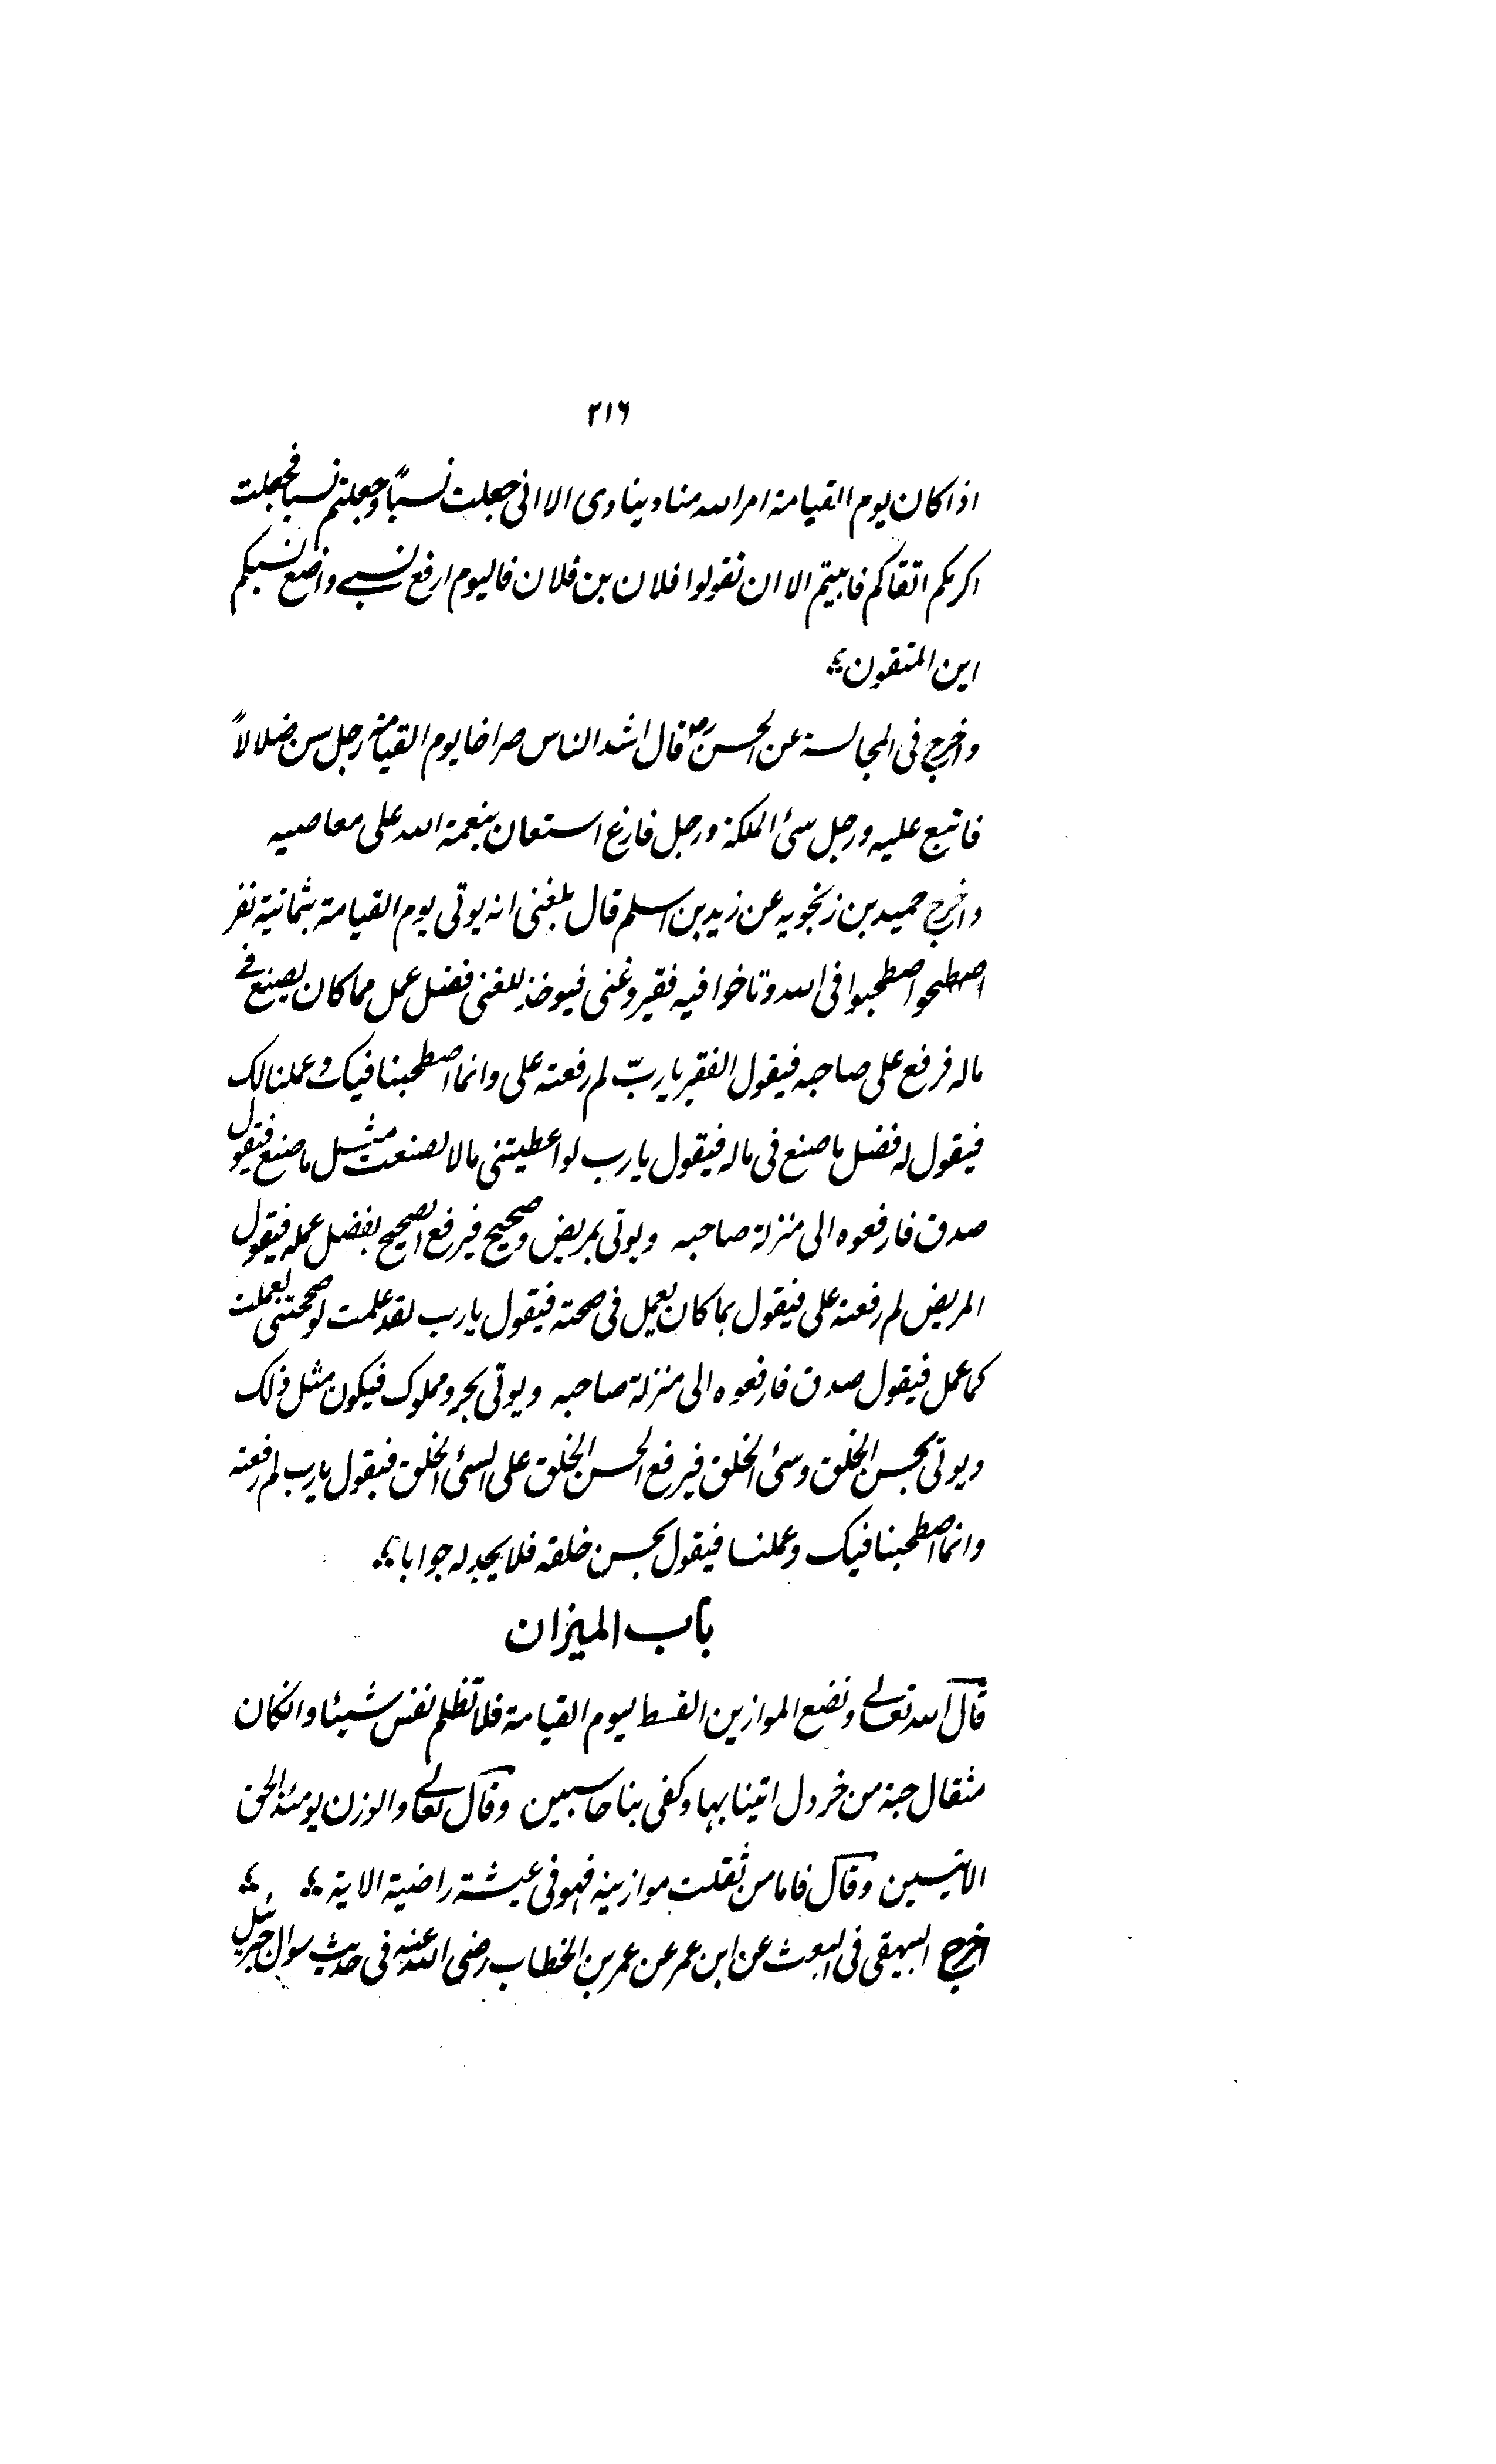 ٢١٦
اذا كان يوم القيامة امر الله مناد ينادى الا انى جعلت نسبًا وجعلتم نسبا فجعلت
اكرمكم اتقاكم فابيتم الا ان تقولوا فلان بن فلان فاليوم ارفع نسبے واضع نسبكم
اين المتقون
واخرج فى المجالسة عن الحسن رض قال اشد الناس صراخا يوم القيامة رجل سن ضلالاً
فاتبع عليه ورجل سئ الملكة ورجل فارغ استعان بنعمة الله على معاصيه
واخرج حميد بن زنجويه عن زيد بن اسلم قال بلغنى انه يوتى يوم القيامة بثمانية نفر
اصطلحوا اصطحبوا فى الله وتاخوا فيه فقير وغنى فيوخذ للغنى فضل عمل مما كان يصنع فے
ماله فرفع على صاحبه فيقول الفقير يا ربّ لم رفعته على وانما اصطحبنا فيك وعملنا لك
فيقول له فضل ما صنع فى ماله فيقول يا رب لو اعطيتنى مالا لصنعت مثل ما صنع فيقول
صدق فارفعوه الى منزلة صاحبه ويوتى بمريض وصحيح فيرفع الصحيح بفضل عمله فيقول
المريض لم رفعته على فيقول بما كان يعمل فى صحته فيقول يا رب لقد علمت لو صححتنى لعملت
كما عمل فيقول صدق فارفعوه الى منزلة صاحبه ويوتى بحر ومملوك فيكون مثل ذلك
ويوتى بحسن الخلق وسئ الخلق فيرفع الحسن الخلق على السئ الخلق فيقول يا رب لم رفعته
وانما اصطحبنا فيك وعملنا فيقول بحسن خلقه فلا يجد له جوابا
باب الميزان
قال الله تعالے ونضع الموازين القسط ليوم القيامة فلا تظلم نفس شيئا وانكان
مثقال حبة من خردل اتينا بها وكفى بنا حاسبين وقال تعالے والوزن يومئذ الحق
الايتيين وقال فاما من ثقلت موازينه فهو فى عيشة راضية الاية
اخرج البيهقى فى البعث عن ابن عمر عن عمر بن الخطاب رضى الله عنه فى حديث سوال جبرئيل